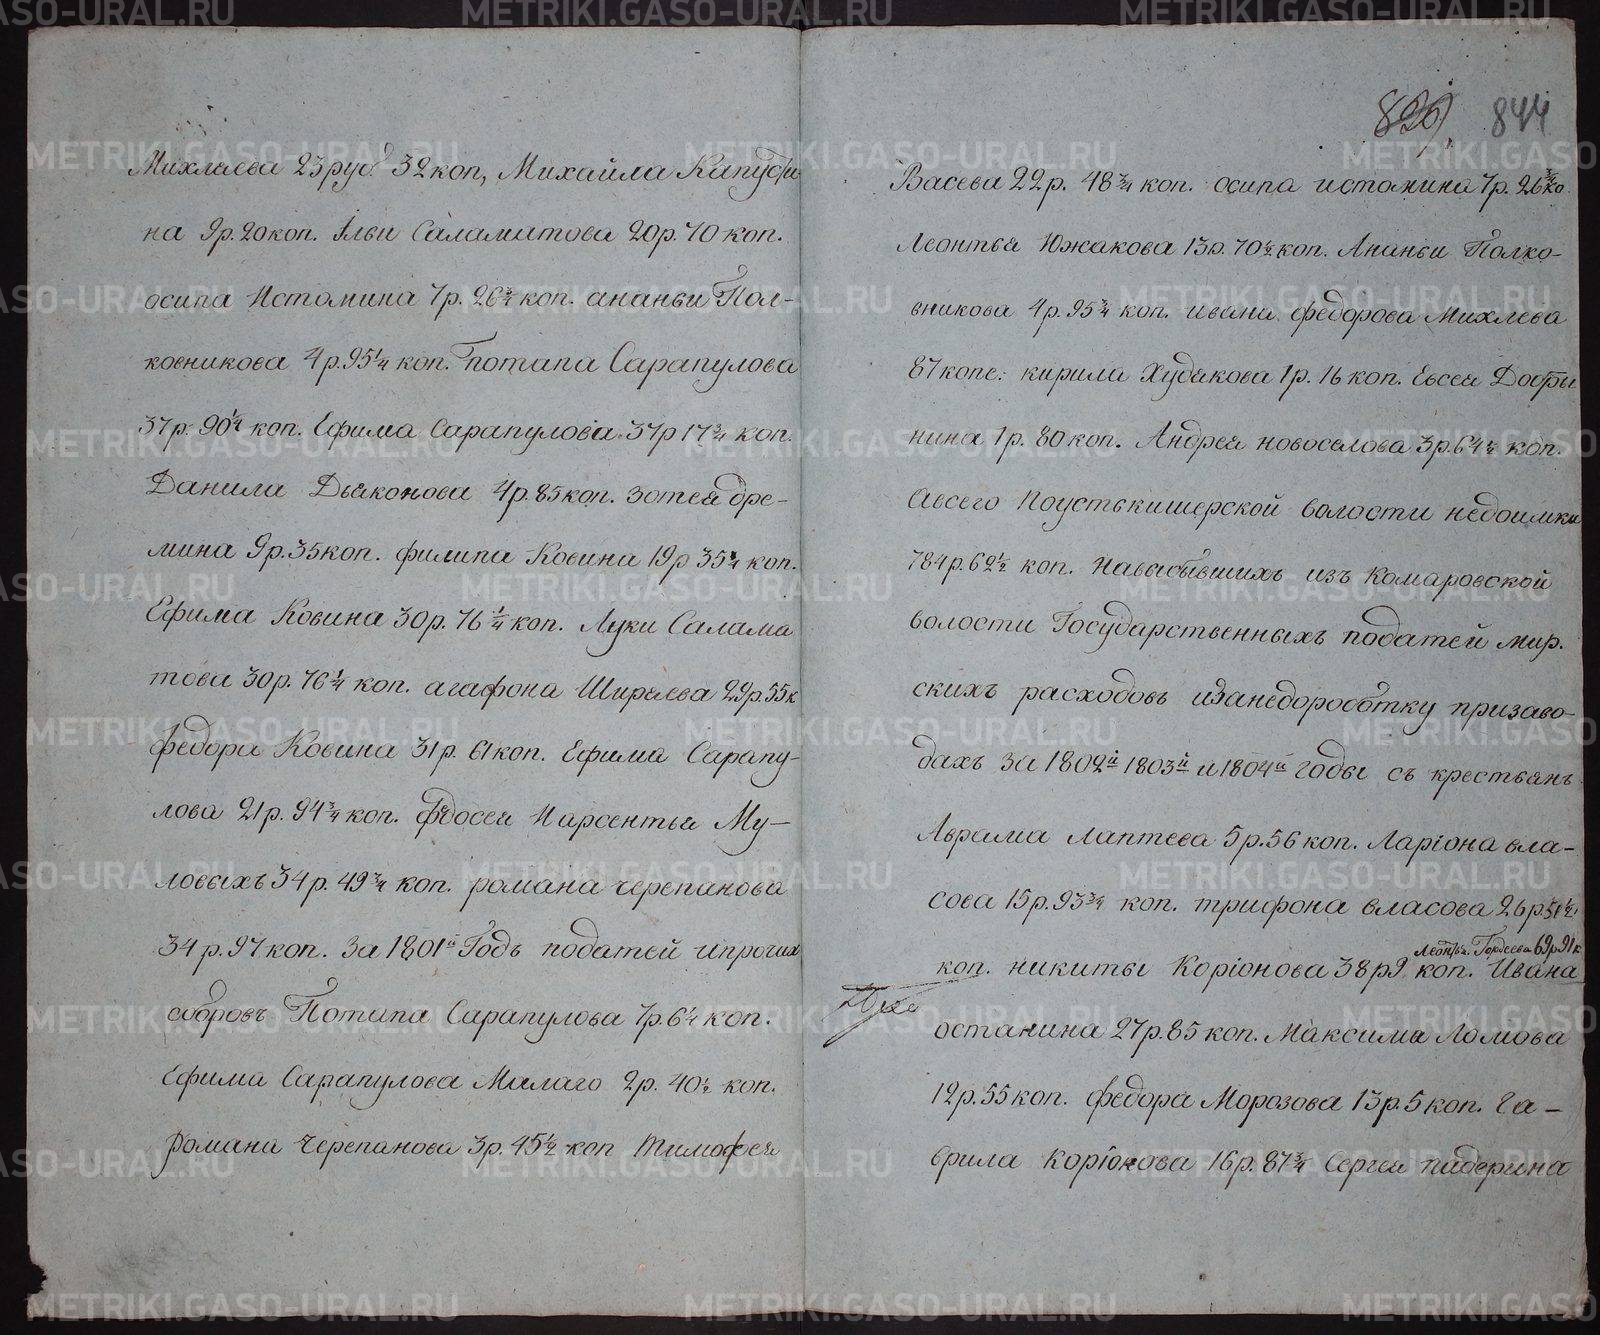 Михлаева 23 руб. 32 коп, Михайла Капусти
на 9 р. 20 коп. Ильи Саламатова 20 р. 70 коп.
осипа Истомина 7 р. 26 3/4 коп. ананьи Пол-
ковникова 4 р. 95 1/4 коп. Потапа Сарапулова
37 р. 90 1/4 коп. Ефима Сарапулова 37 р 17 3/4 коп.
Данила Дьяконова 4 р. 85 коп. Зотея дре-
мина 9 р. 35 коп. филипа Ковина 19 р 35 3/4 коп.
Ефима Ковина 30 р. 76 1/4 коп. Луки Салама
това 30 р. 76 1/4 коп. агафона Ширяева 29 р. 55 к
федора Ковина 31 р. 61 коп. Ефима Сарапу-
лова 21 р. 94 3/4 коп. Федосея Иарсентья Му-
ловыхъ 34 р. 49 3/4 коп. романа черепанова
34 р. 97 коп. За 1801й Годъ податей ипрочих
сборовъ Потапа Сарапулова 7 р. 6 1/4 коп.
Ефима Сарапулова Малаго 2 р. 40 1/2 коп.
романа черепанова 3 р. 45 1/2 коп Тимофея
829. 844
Васева 22 р. 48 3/4 коп. осипа истомина 7 р. 26 3/4 ко
Леонтья Южакова 13 р. 70 1/2 коп. Ананьи Полко-
вникова 4 р. 95 3/4 коп. ивана федорова Михлева
87 копе: кирила Худякова 1 р. 16 коп. Евсея Добры
нина 1 р. 80 коп. Андрея новоселова 3 р. 64 1/2 коп.
Авсего Поустькишерской волости недоимки
784 р. 62 1/2 коп. Навыбывшихъ изъ Комаровской
волости Государственныхъ податей мир.
скихъ расходовъ изанедороботку призаво-
дахъ за 1802й 1803й и 1804й годы съ крестьянъ
Аврама лаптева 5 р. 56 коп. Ларіона вла-
сова 15 р. 93 3/4 коп. трифона власова 26 р. 51 1/2
Леонтья Гордеева 69 р 91 к
коп. никиты Коріонова 38 р 9 коп. Ивана
останина 27 р. 85 коп. Максима Ломова
12 р. 55 коп. федора Морозова 13 р. 5 коп. Га-
врила Коріонова 16 р. 87 3/4 Сергея падерина
METRIKI.GASO-URAL.RU